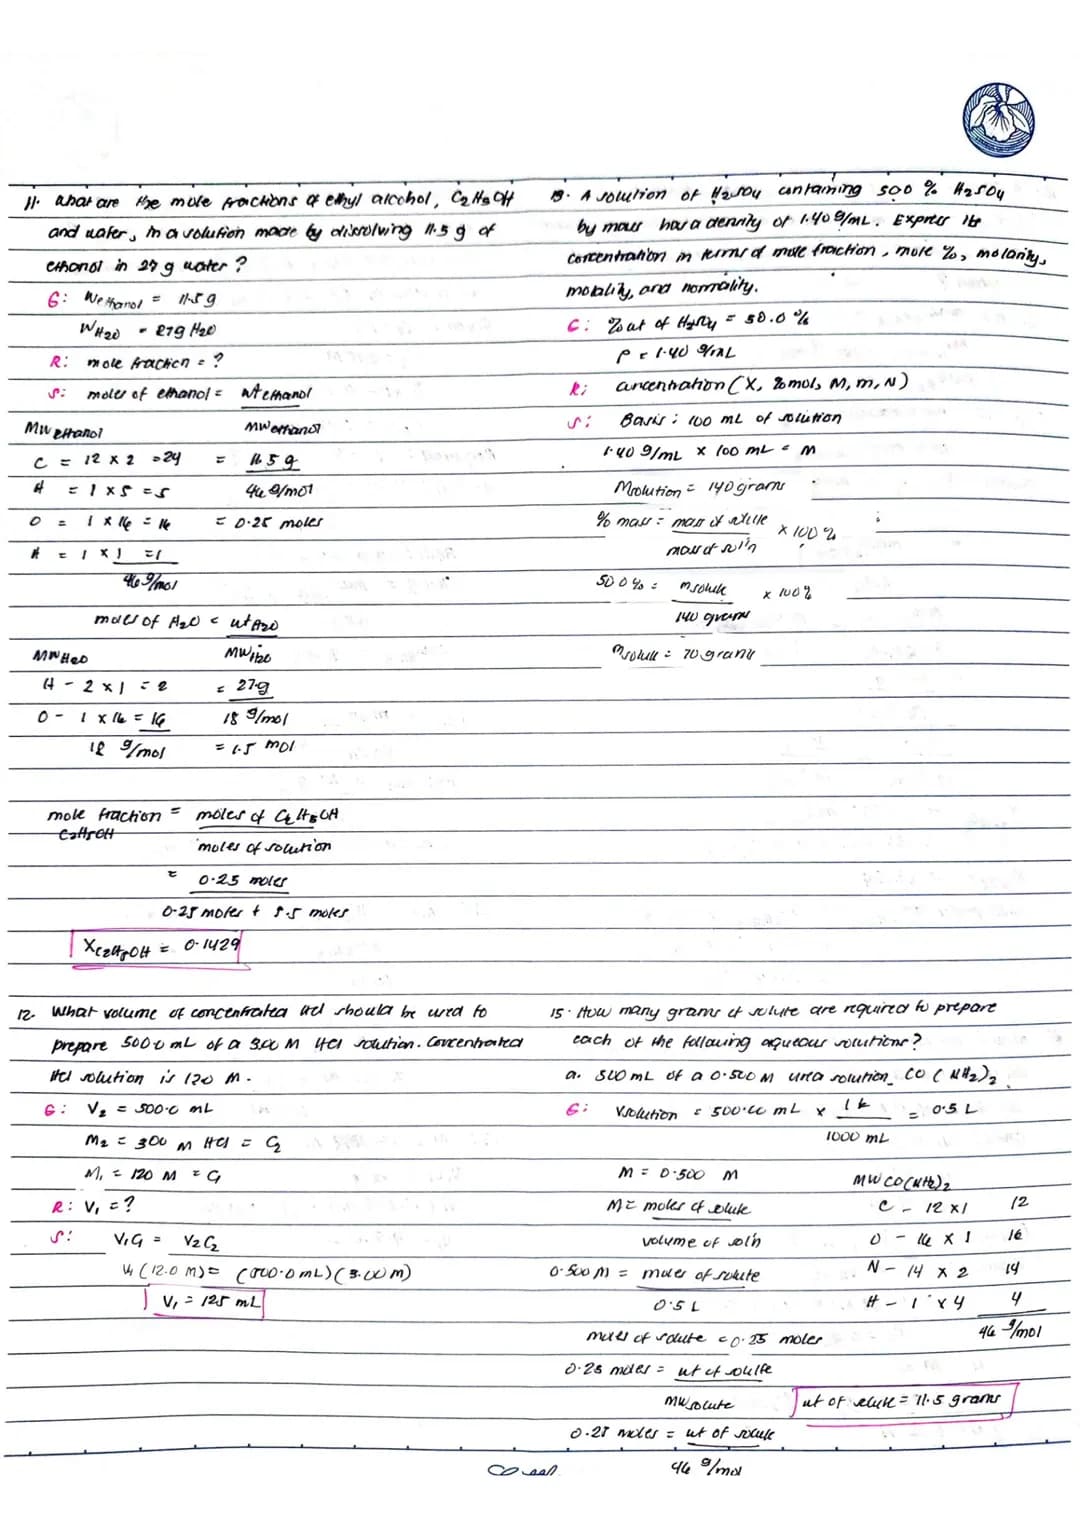 11. What are the mole fractions of ethyl alcohol, C2H5OH
and water, in a solution made by dissolving 11.5 g of
ethanol in 27 g water?
G: Wethanol = 11.5 g
WH2O = 27g H2O
R: mole fraction = ?
S: moles of ethanol = wt ethanol
MW ethanol
MW ethanol
C = 12 x 2 = 24
= 11.5 g
H = 1 x 5 = 5
46 g/mol
O = 1 x 16 = 16
= 0.25 moles
H = 1 x 1 = 1
46 g/mol
moles of H2O = wt H2O
MW H2O
MW H2O
H - 2 x 1 = 2
= 27g
O - 1 x 16 = 16
18 g/mol
18 g/mol
= 1.5 mol
mole fraction = moles of C2H5OH
C2H5OH
moles of solution
= 0.25 moles
0.25 moles + 1.5 moles
XC2H5OH = 0.1429
12. What volume of concentrated HCl should be used to
prepare 500.0 mL of a 3.00 M HCl solution. Concentrated
HCl solution is 12.0 M.
G: V2 = 500.0 mL
M2 = 3.00 M HCl = C2
M1 = 12.0 M = C1
R: V1 = ?
S: V1C1 = V2C2
V1 (12.0 M) = (500.0 mL)(3.00 M)
V1 = 125 mL
13. A solution of H2SO4 containing 50.0 % H2SO4
by mass has a density of 1.40 g/mL. Express its
concentration in terms of mole fraction, mole %, molarity,
molality, and normality.
G: % wt of H2SO4 = 50.0 %
ρ = 1.40 g/mL
R: concentration (X, %mol, M, m, N)
S: Basis: 100 mL of solution
1.40 g/mL x 100 mL = m
Msolution = 140 grams
% mass = mass of solute x 100 %
mass of sol'n
50.0 % = msolute x 100 %
140 grams
msolute = 70 grams
15. How many grams of solute are required to prepare
each of the following aqueous solutions?
a. 500 mL of a 0.500 M urea solution, CO(NH2)2
G: Vsolution = 500.00 mL x 1 L = 0.5 L
1000 mL
M = 0.500 M
MW CO(NH2)2
M = moles of solute
C - 12 x 1 12
volume of sol'n
O - 16 x 1 16
0.500 M = moles of solute
N - 14 x 2 14
0.5 L
H - 1 x 4 4
moles of solute = 0.25 moles
46 g/mol
0.25 moles = wt of solute
MW solute
wt of solute = 11.5 grams
0.25 moles = wt of solute
46 g/mol